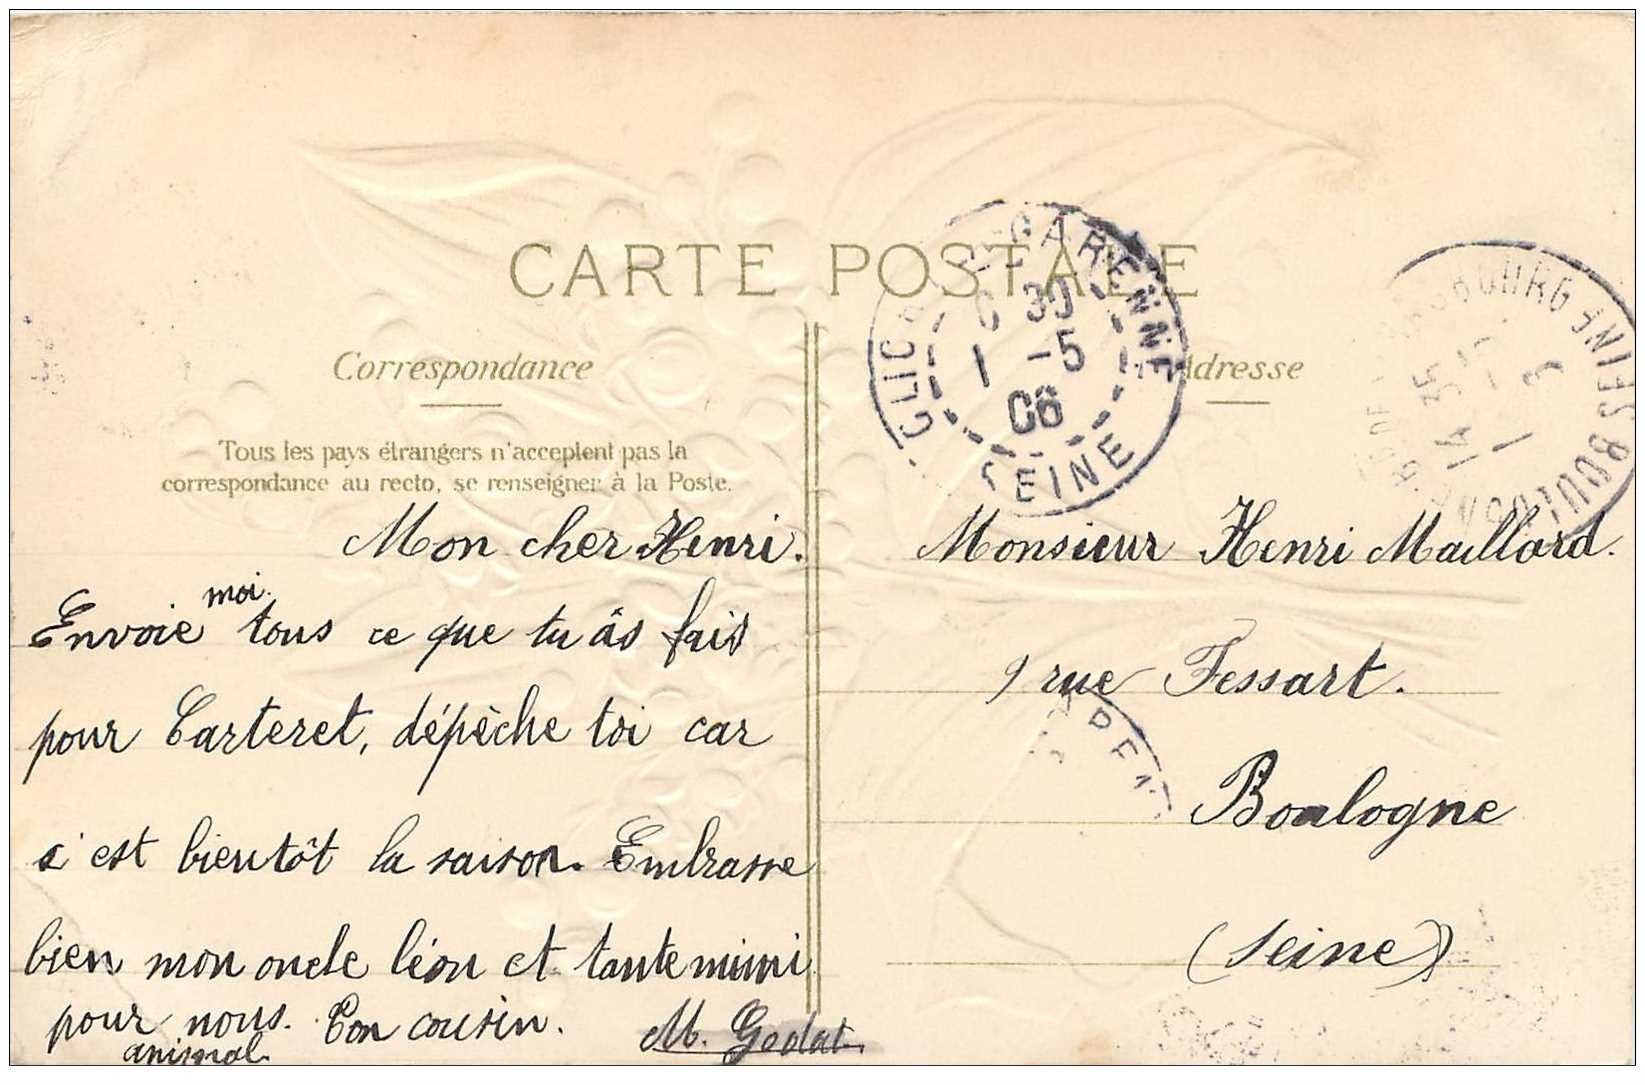 CARTE POSTALE
Correspondance
Adresse
Tous les pays étrangers n'acceptent pas la
correspondance au recto, se renseigner à la Poste.
LA GARENNE
30
1 -5
06
SEINE
SEINE
Mon cher Henri.
Envoie moi tous ce que tu âs fais
pour Carteret, dépèche toi car
c'est bientôt la saison. Embrasse
bien mon oncle léon et tante mimi
pour nous. Ton cousin.
animal.
M. Godat.
Monsieur Henri Maillard.
9 rue Fessart.
Boulogne
(Seine)